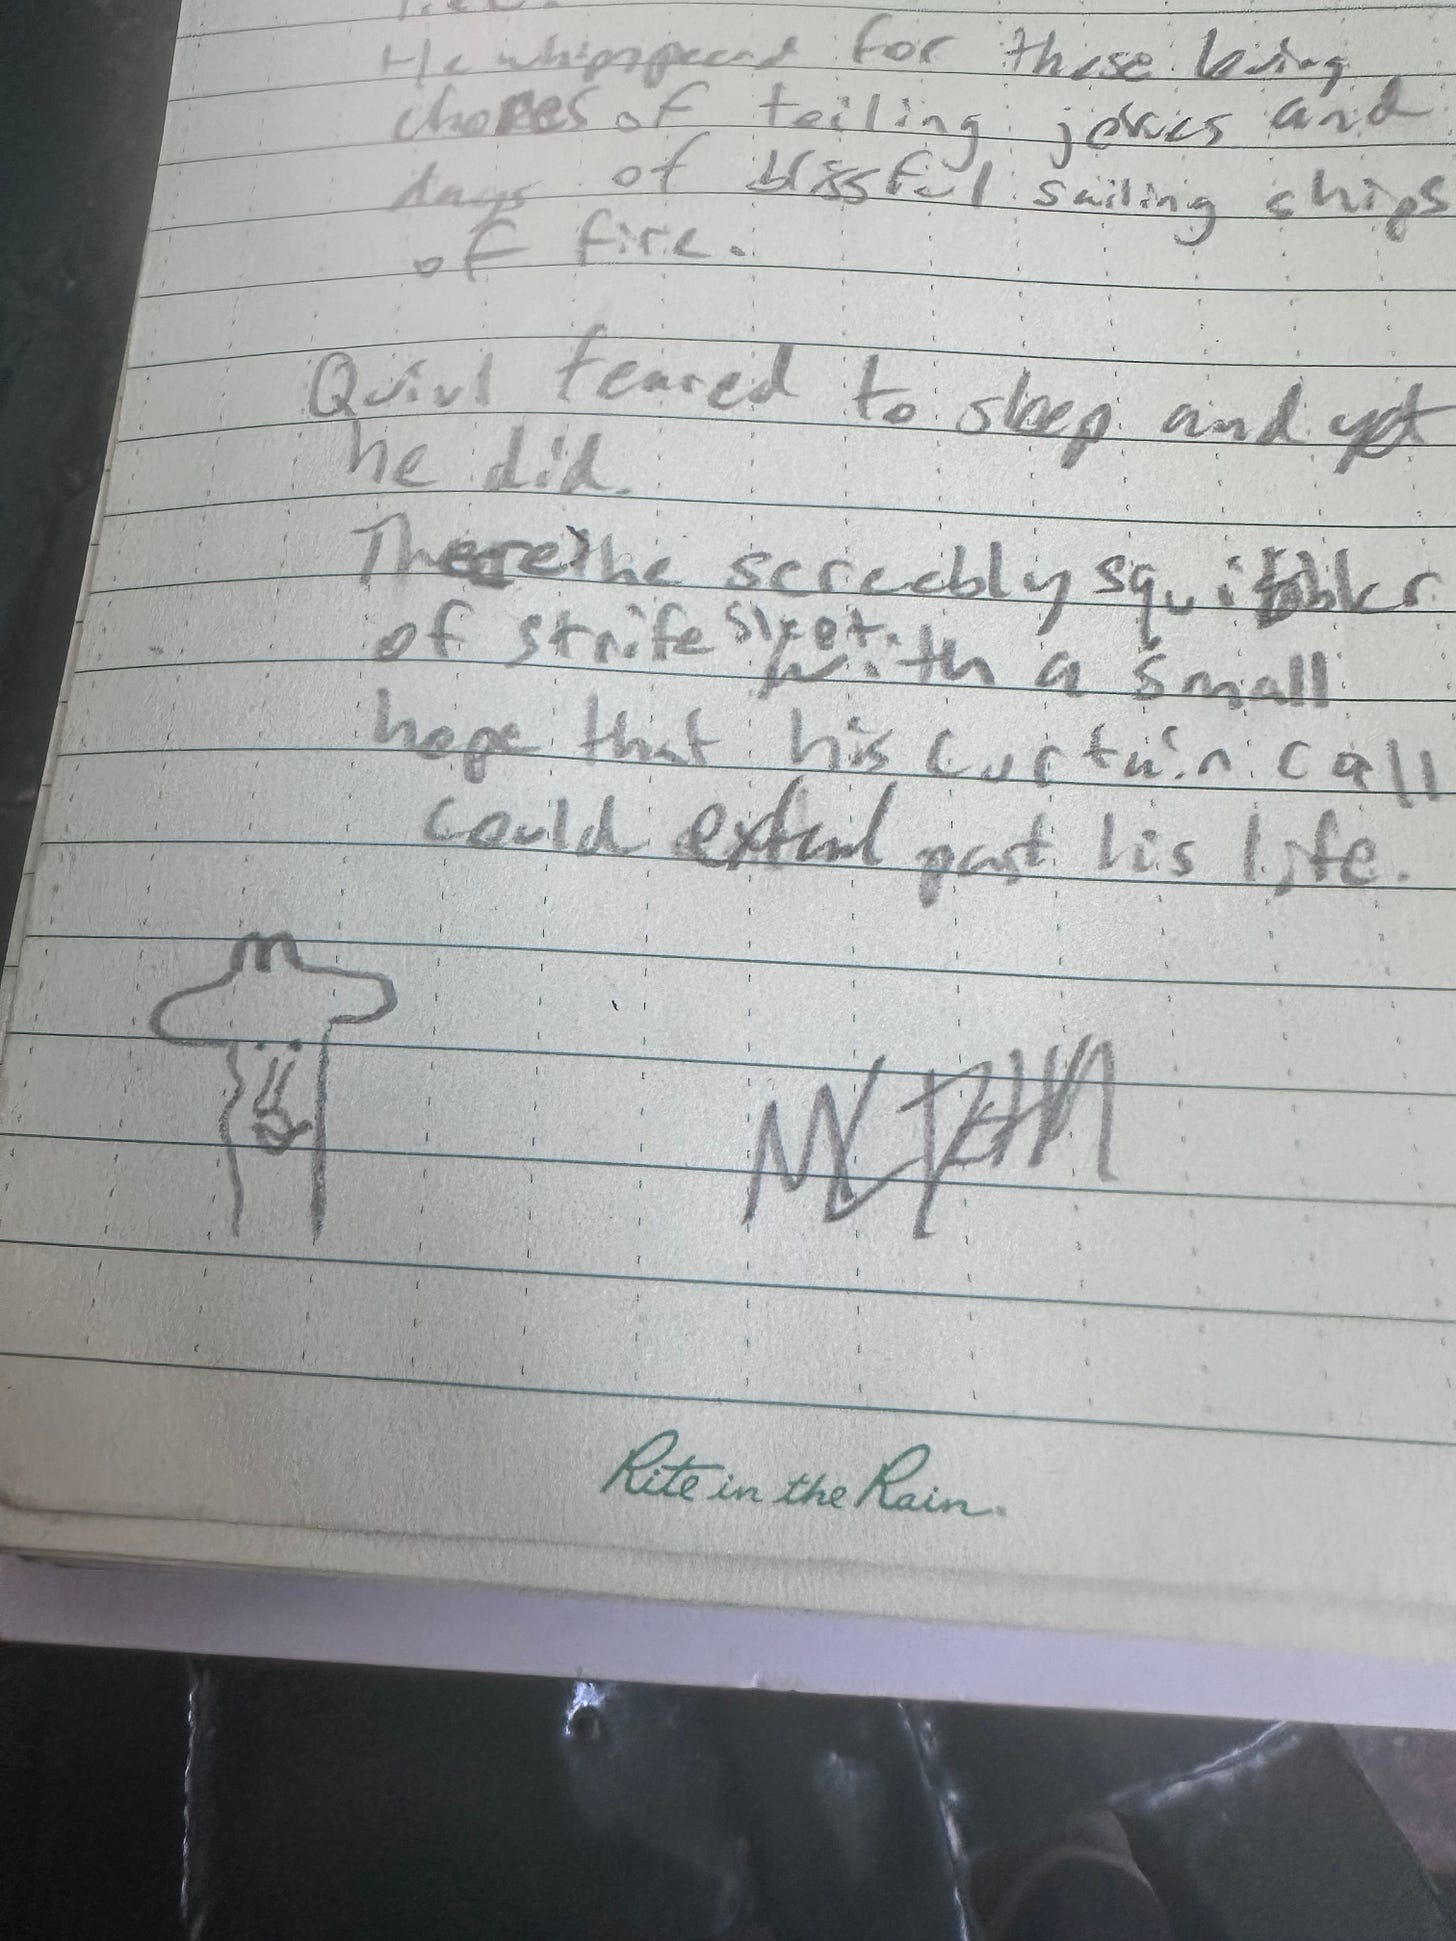 He whispered for those loving
chores of telling jokes and
days of blissful sailing ships
of fire.
Quivl feared to sleep and yet
he did.
There the screebly squibbler
of strife slept. with a small
hope that his curtain call
could extend past his life.
Rite in the Rain.